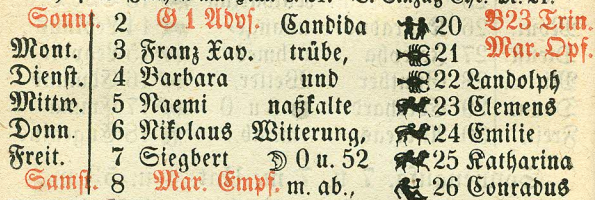 Sonnt. 2 G 1 Adv. Candida 20 B23.Trin.
Mont. 3 Franz Xav. trübe, 21 Mar. Opf.
Dienst. 4 Barbara und 22 Landolph
Mittw. 5 Naemi naßkalte 23 Clemens
Donn. 6 Nikolaus Witterung, 24 Emilie
Freit. 7 Siegbert ☽ 0 u. 52 25 Katharina
Samst. 8 Mar. Empf. m. ab., 26 Conradus